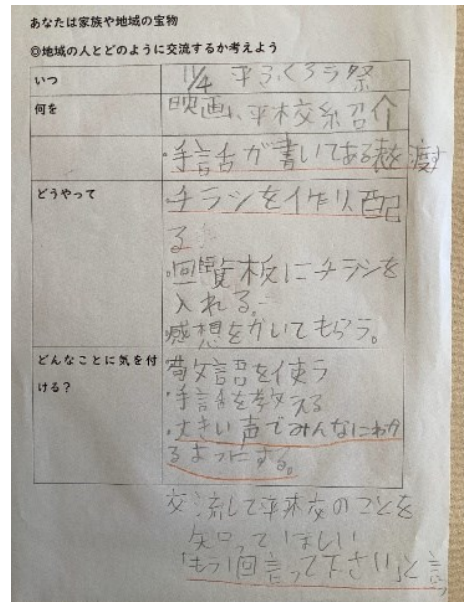 あなたは家族や地域の宝物
◎地域の人とどのように交流するか考えよう
いつ
11/4 平ふくろう祭
何を
映画、平本校紹介
・手話が書いてある表を渡す
どうやって
チラシを作り配
る
・回覧板にチラシを
入れる。
・感想をかいてもらう。
どんなことに気を付
ける？
敬語を使う
・手話を教える
・大きい声でみんなにわか
るようにする。
交流して平本校のことを
知ってほしい
「もう1回言って下さい」と言う